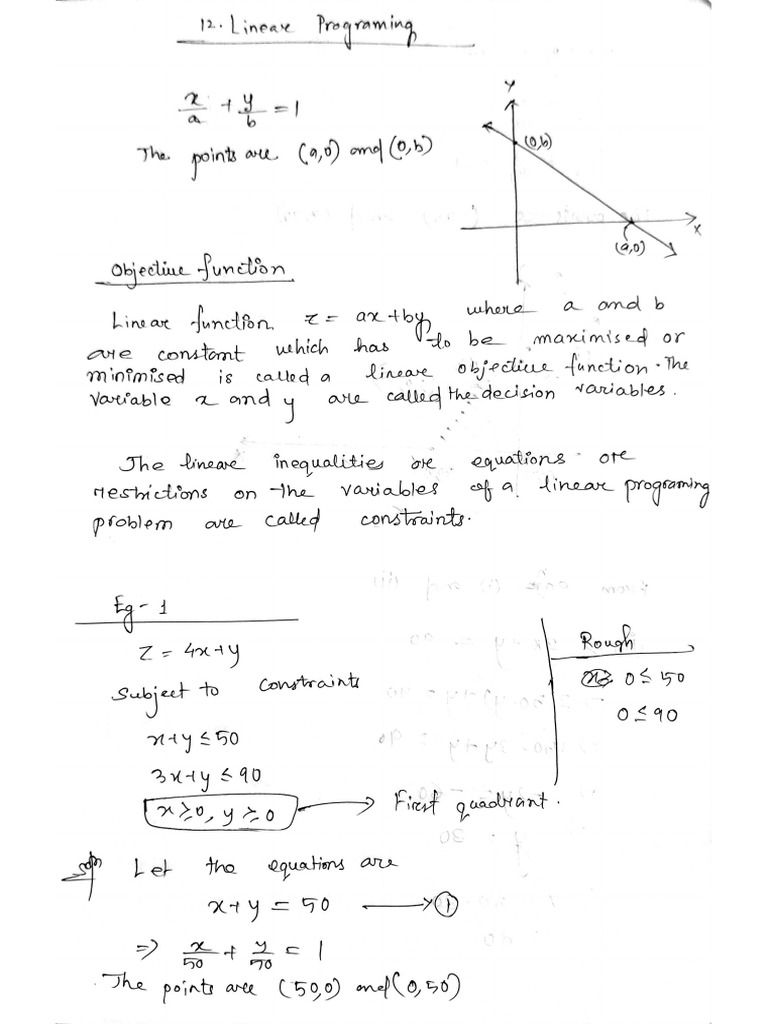 12. Linear Programing
x/a + y/b = 1
The points are (a,0) and (0,b)
Y
(0,b)
X
(a,0)
Objective function
Linear function z = ax+by, where a and b
are constant which has to be maximised or
minimised is called a linear objective function. The
variable x and y are called the decision variables.
The linear inequalities or equations or
restrictions on the variables of a linear programing
problem are called constraints.
Eg - 1
Z = 4x+y
Subject to constraints
x+y ≤ 50
3x+y ≤ 90
x ≥ 0, y ≥ 0 → First quadrant.
Rough
0 ≤ 50
0 ≤ 90
Soln Let the equations are
x+y = 50 → ①
⇒ x/50 + y/50 = 1
The points are (50,0) and (0,50)